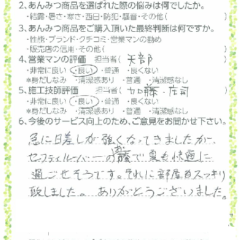 2.あんみつ商品を選ばれた際の悩みは何でしたか。
・結露・暑さ・寒さ・西日・防犯・騒音・その他(
3.あんみつ商品をご購入頂いた最終判断は何ですか。
・性格・ブランド・クチコミ・営業マンの勧め
・販売店の信用・その他(
4.営業マンの評価 担当者( 矢部
・非常に良い ・良い ・普通 ・良くない
・身だしなみ ・清潔感あり ・普通 ・清潔感なし
5.施工技師評価 担当者( 加藤・庄司
・非常に良い ・良い ・普通 ・良くない
・身だしなみ ・清潔感あり ・普通 ・清潔感なし
6.今後のサービス向上のため、ご意見をお聞かせ下さい。
急に日差しが強くなってきましたが、
セーフティルーバーの窓で夏も快適に
過ごせそうです。それに部屋もスッキリ
致しました。ありがとうございました。